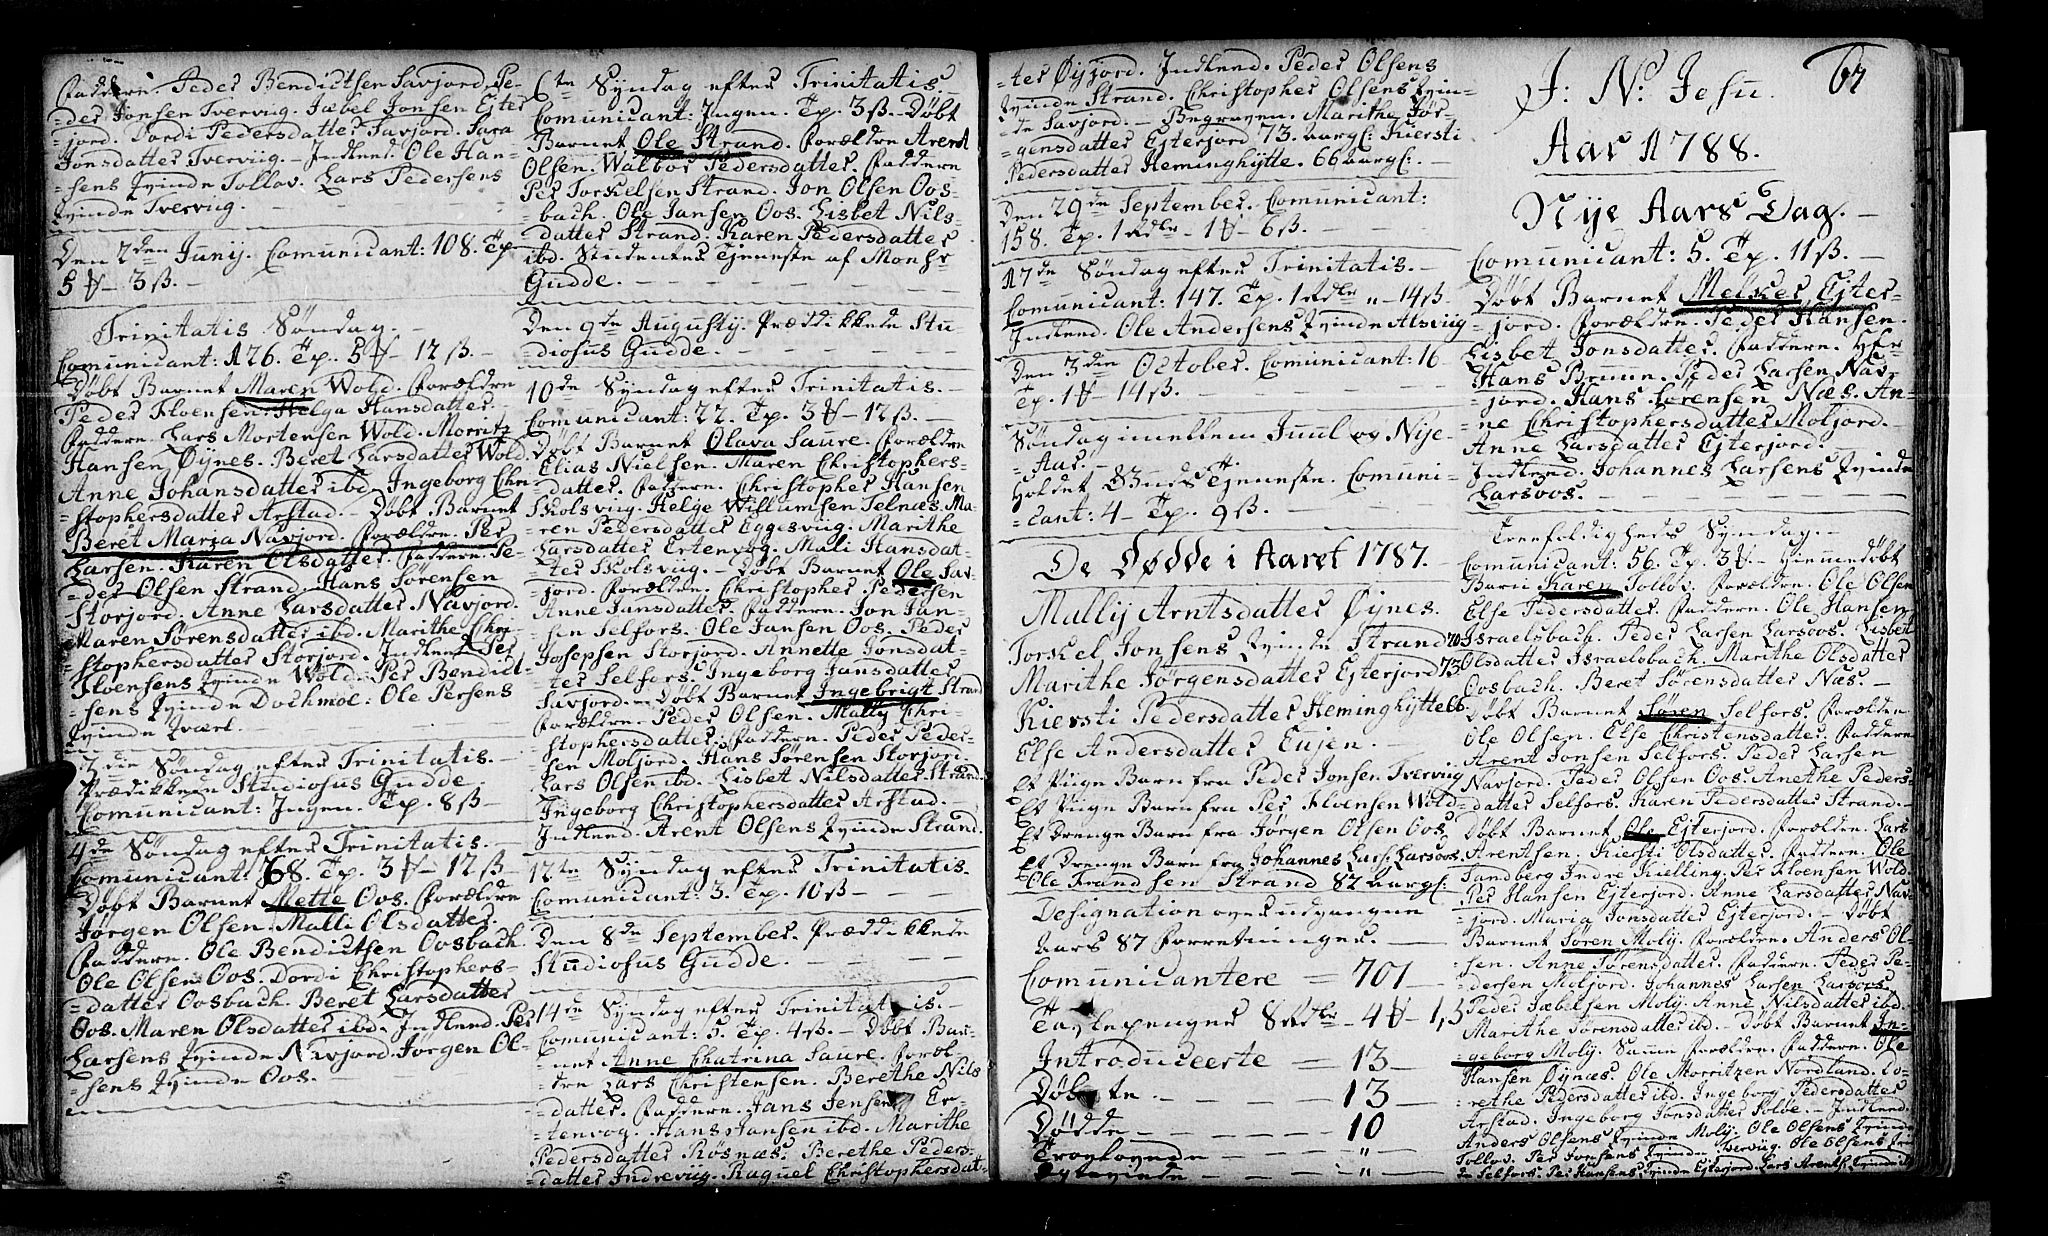 Faddern. Peder Bendictsen Savjord. Pe-
der Jonsen Tverviig. Jæbel Jonsen Ejter
jord. Dordi Pedersdatter Savjord. Sara
Jonsdatter Tverviig. - Indleed. Ole Han-
sens Qvinde Tollov. Lars Pedersens
Qvinde Tverviig.
Den 2den Junij. Comunicant: 108. Tp.
5 - 3ß.
Trinitatis Søndag.
Comunicant: 126. Tp. 5 - 12ß.
Døbt Barnet Maren Wold. Forældre
Peder Floensen. Helga Hansdatter.
Faddern. Lars Mortensen Wold. Morritz
Hansen Øynes. Beret Larsdatter Wold.
Anne Johansdatter ibd. Ingeborg Chri
=stophersdatter Arstad. - Døbt Barnet
Beret Maria Navjord. Forældre. Per
Larsen. Karen Olsdatter. Faddern. Pe-
der Olsen Strand. Hans Sørensen
Storjord. Anne Larsdatter Navjord.
Maren Sørensdatter ibd. Marithe Chri-
stophersdatter Storjord. Indleed Per
Floensens Qvinde Wold. Per Bendict-
sens Qvinde Dochmoe. Ole Persens
Qvinde
3die Søndag efter Trinitatis.
Prædikken Studiosus Gudde
Comunicant: Ingen. Tp. 8ß
4de Søndag efter Trinitatis.
Comunicant: 68. Tp. 3 - 12ß
Døbt Barnet Mette Oos. Forældre
Jørgen Olsen. Malli Olsdatter.
Faddern. Ole Bendictsen Oosbach.
Ole Olsen Oos. Dordi Christophers-
=datter Oosbach. Beret Larsdatter
Oos. Maren Olsdatter ibd. Indleed. Per
Larsens Qvinde Navjord. Jørgen Ol-
sens Qvinde Oos.
6te Syndag efter Trinitatis.
Comunicant: Ingen. Tp. 3ß. Døbt
Barnet Ole Strand. Forældre Arent
Olsen. Walbor Pedersdatter. Faddern
Per Torskelsen Strand. Jon Olsen Oos-
bach. Ole Jansen Oos. Lisbet Nils-
datter Strand. Karen Pedersdatter
ibd. Studenter Tjeneste af Monsr
Gudde.
Den 9de Augusty. Præddikkede Stu
=diosus Gudde.
10de Syndag efter Trinitatis.
Comunicant: 22. Tp. 3 - 12ß.
Døbt Barnet Olava Saure. Forældre
Elias Nielsen. Maren Christophers-
datter. Faddern. Christopher Hansen
Skolsviig. Helge Willumsen Telnæs. Ma-
ren Pedersdatter Eggesviig. Marithe
Larsdatter Ertenvog. Mali Hansdat-
ter Skolsviig. - Døbt Barnet Ole Sav-
jord. Forældre. Christopher Pedersen
Anne Jansdatter. Faddern. Jon Jan-
sen Selfors. Ole Jansen Oos. Peder
Josepsen Storjord. Annette Jonsdat-
ter Selfors. Ingeborg Jansdatter
Savjord. - Døbt Barnet Ingebrigt Strand
Forældre. Peder Olsen. Mally Chri-
stophersdatter. Faddern. Peder Peder-
sen Moljord. Hans Sørensen Storjord
Lars Olsen ibd. Lisbet Nilsdatter Strand.
Ingeborg Christophersdatter Arstad.
Indleed. Arent Olsens Qvinde Strand.
12te Syndag efter Trinitatis.
Comunicant: 3. Tp. 10ß
Den 8de September. Præddikkede
Studiosus Gudde.
14de Syndag efter Trinitatis.
Comunicant: 5. Tp. 4ß. - Døbt Bar-
net Anne Chatrina Saure. Foræl
dre Lars Christensen. Berethe Nils
datter. Faddern. Jans Jensen Er-
=tenvog. Hans Hansen ibd. Marithe
Pedersdatter Røsnæs. Berethe Peders-
datter Indreviig. Raquel Christophersdat-
=ter Øyjord. Indleed. Peder Olsens
Qvinde Strand. Christopher Olsens Qvin-
de Savjord. - Begraven. Marithe Jør-
gensdatter Ejterjord 73. aargl: Kiersti
Pedersdatter Heminghÿtte. 66 aargl:
Den 29de September. Comunicant:
158. Tp. 1 Rdlr - 1 - 6ß.
17de Søndag efter Trinitatis.
Comunicant: 147. Tp. 1 Rdlr " - 14ß.
Indleed. Ole Andersens Qvinde Alsviig
Den 3die October. Comunicant: 16
Tp. 1 - 14ß.
Søndag imellem Juul og Nije-
=Aar.
Holdet Guds Tjeneste. Comuni-
=cant: 4 - Tp. 9ß.
De Dødde i Aaret 1787.
Mallij Arntsdatter Øÿnes.
Torskel Jonsens Qvinde Strand 70
Marithe Jørgensdatter Ejterjord 73.
Kiersti Pedersdatter Heminghÿtte 66
Else Andersdatter Eujen.
Et Piige Barn fra Peder Jonsen Tverviig
Et Piige Barn fra Per Floensen Wold
Et Drenge Barn fra Jørgen Olsen Oos
Et Drenge Barn fra Johannes Lars: Larsoos
Ole Frandsen Strand 82 aargl:
Designation over udgangne
Aars 87 Forretninger.
Comunicantere = 701
Tavlepenger 8 Rdlr - 4 - 13
Introduceerte = 13
Døbte. - - - 13
Dødde - - - 10
Trovlovede - - "
Egteviede - - "
64
J: N: Jesu.
Aar 1788.
Nÿe Aars Dag.
Comunicant: 5. Tp. 11ß.
Døbt Barnet Melker Ejter-
=jord. Forældre. Peder Hansen.
Lisbet Jonsdatter. Faddern. Hr
Hans Bruun. Peder Larsen Nav-
jord. Hans Sørensen Næs. An-
ne Christophersdatter Moljord.
Anne Larsdatter Ejterjord.
Indleed. Johannes Larsens Qvinde
Larsoos.
Treefoldigheds Syndag.
Comunicant: 56. Tp. 3 - Hiemmedøbt
Barn Karen Tollov. Forældre. Ole Olsen
Else Pedersdatter. Faddern. Ole Hansen
Israelsbach. Peder Larsen Larsoos. Lisbet
Olsdatter Israelsbach. Marithe Olsdatter
Oosbach. Beret Sørensdatter Næs.
Døbt Barnet Søren Selfors. Forældre
Ole Olsen. Else Christensdatter. Faddern
Arent Jonsen Selfors. Peder Larsen
Navjord. Peder Olsen Oos. Anethe Peders-
=datter Selfors. Karen Pedersdatter Strand.
Døbt Barnet Ole Ejterjord. Forældre. Lars
Arentsen. Kiersti Olsdatter. Faddern. Ole
Sandberg Indre Kielling. Per Floensen Wold.
Per Hansen Ejterjord. Anne Larsdatter Nav-
=jord. Maria Jonsdatter Ejterjord. - Døbt
Barnet Søren Molij. Forældre. Anders Ol-
sen. Anne Sørensdatter. Faddern. Peder Pe-
dersen Moljord. Johannes Larsen Larsoos.
Peder Jæbelsen Molij. Anne Nilsdatter ibd.
Marithe Sørensdatter ibd. - Døbt Barnet In-
=geborg Molij. Samme Forældre. Faddern. Ole
Hansen Øÿnæs. Ole Morritzen Nordland. Lo-
rethe Pedersdatter ibd. Ingeborg Pedersdatter
Arstad. Ingeborg Jonsdatter Soløe. - Indleed.
Anders Olsens Qvinde Molij. Ole Olsens Qvinde
Tollov. Per Jonsens Qvinde Tverviig. Ole Olsens Qvin
de Selfors. Per Hansens Qvinde Ejterjord. Lars Arents: Qvinde ibd